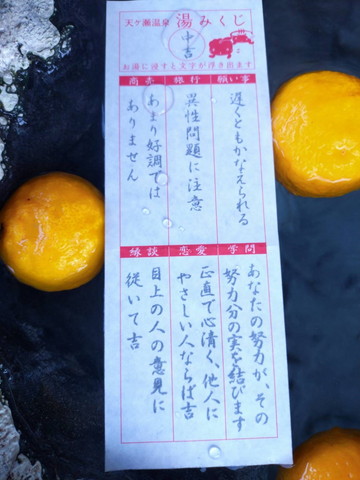 天ヶ瀬温泉
湯みくじ
中吉
お湯に浸すと文字が浮き出ます
願い事
遅くともかなえられる
旅行
異性問題に注意
商売
あまり好調では
ありません
学問
あなたの努力が、その
努力分の実を結びます
恋愛
正直で心清く、他人に
やさしい人ならば吉
縁談
目上の人の意見に
従いて吉